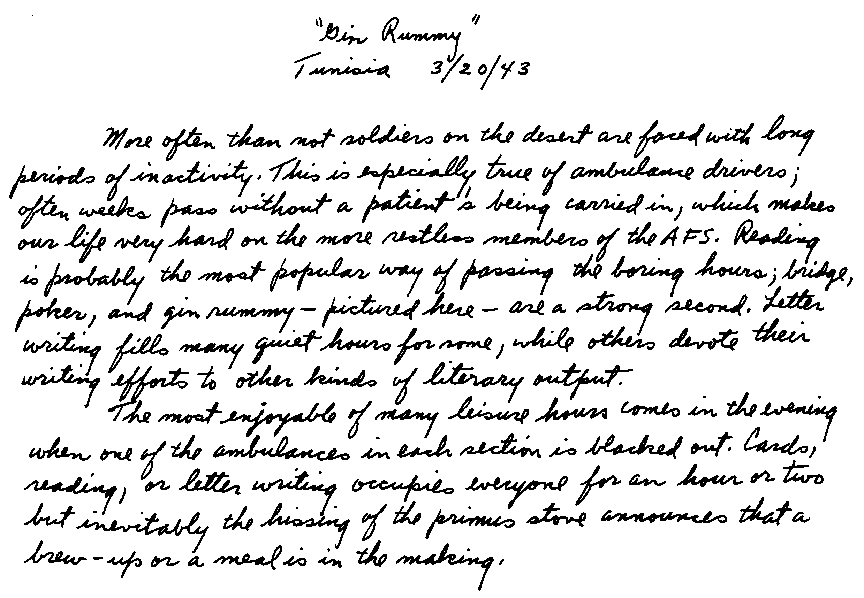 "Gin Rummy"
Tunisia 3/20/43
More often than not soldiers on the desert are faced with long
periods of inactivity. This is especially true of ambulance drivers;
often weeks pass without a patient's being carried in, which makes
our life very hard on the more restless members of the AFS. Reading
is probably the most popular way of passing the boring hours; bridge,
poker, and gin rummy - pictured here - are a strong second. Letter
writing fills many quiet hours for some, while others devote their
writing efforts to other kinds of literary output.
The most enjoyable of many leisure hours comes in the evening
when one of the ambulances in each section is blacked out. Cards,
reading, or letter writing occupies everyone for an hour or two
but inevitably the hissing of the primus stove announces that a
brew-up or a meal is in the making.